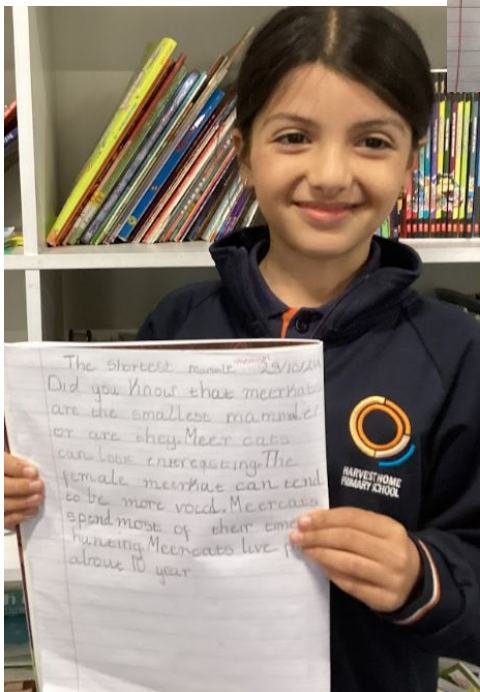 The shortest mammle 29/10/24
Did you know that meerkats
are the smallest mammles
or are they. Meer cats
can look enteregsting. The
female meerkat can tend
to be more vocal. Meercats
spend most of their time
hunting Meercats live
about 10 year
HARVEST HOME
PRIMARY SCHOOL